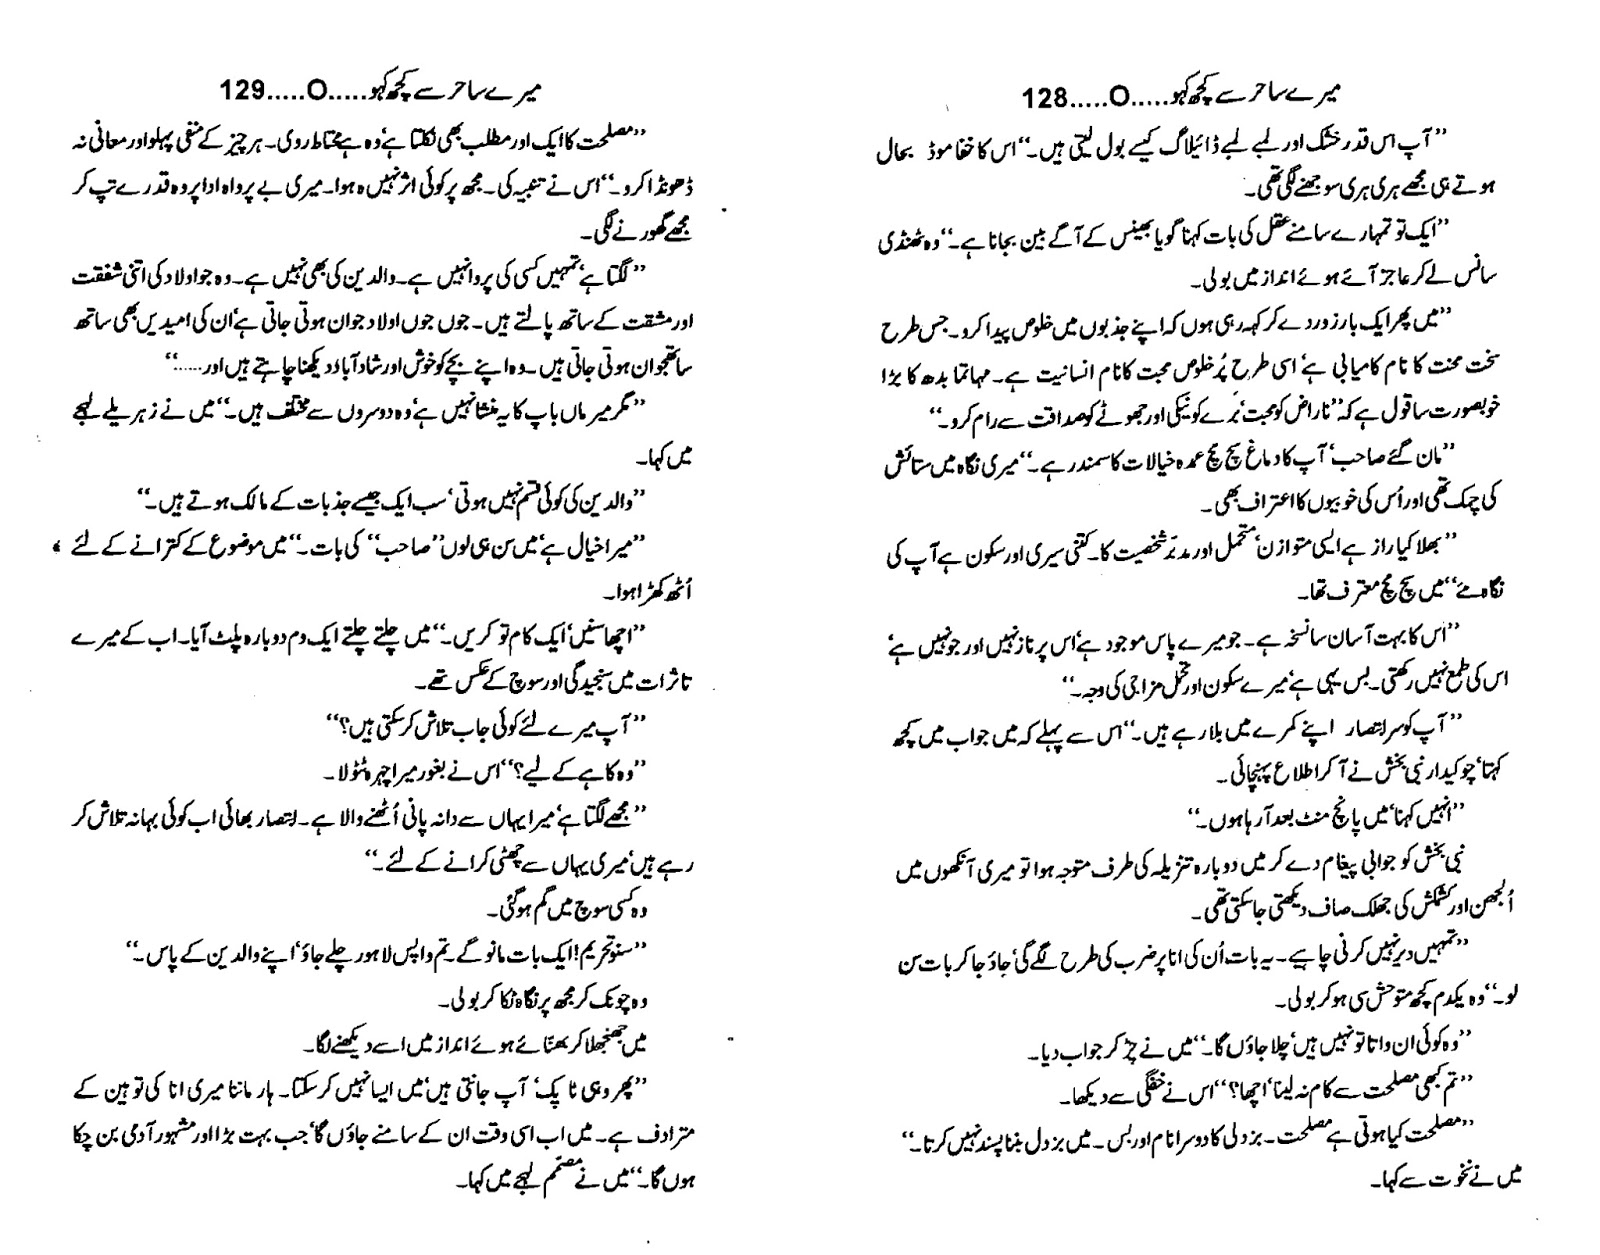 میرے ساحر سے کچھ کہو.....O.....128
”آپ اس قدر خشک اور لمبے لمبے ڈائیلاگ کیسے بول لیتی ہیں۔“ اس کا خفا موڈ بحال
ہوتے ہی مجھے ہری ہری سوجھنے لگی تھی۔
”ایک تو تمہارے سامنے عقل کی بات کہنا گویا بھینس کے آگے بین بجانا ہے۔“ وہ ٹھنڈی
سانس لے کر عاجز آئے ہوئے انداز میں بولی۔
”میں پھر ایک بار زور دے کر کہہ رہی ہوں کہ اپنے جذبوں میں خلوص پیدا کرو۔ جس طرح
سخت محنت کا نام کامیابی ہے‘ اسی طرح پُرخلوص محبت کا نام انسانیت ہے۔ مہاتما بدھ کا بڑا
خوبصورت سا قول ہے کہ ”ناراض کو محبت‘ بُرے کو نیکی اور جھوٹے کو صداقت سے رام کرو۔“
”مان گئے صاحب‘ آپ کا دماغ سچ مچ عمدہ خیالات کا سمندر ہے۔“ میری نگاہ میں ستائش
کی چمک تھی اور اُس کی خوبیوں کا اعتراف بھی۔
”بھلا کیا راز ہے ایسی متوازن‘ متحمل اور مدبر شخصیت کا۔ کتنی سیری اور سکون ہے آپ کی
نگاہ مے“ میں سچ مچ معترف تھا۔
”اس کا بہت آسان سا نسخہ ہے۔ جو میرے پاس موجود ہے‘ اس پر ناز نہیں اور جو نہیں ہے‘
اس کی طمع نہیں رکھتی۔ بس یہی ہے‘ میرے سکون اور تحمل مزاجی کی وجہ۔“
”آپ کو سر انتصار اپنے کمرے میں بلا رہے ہیں۔“ اس سے پہلے کہ میں جواب میں کچھ
کہتا‘ چوکیدار نبی بخش نے آ کر اطلاع پہنچائی۔
”انہیں کہنا‘ میں پانچ منٹ بعد آ رہا ہوں۔“
نبی بخش کو جوابی پیغام دے کر میں دوبارہ تنزیلہ کی طرف متوجہ ہوا تو میری آنکھوں میں
اُلجھن اور کشمکش کی جھلک صاف دیکھی جا سکتی تھی۔
”تمہیں دیر نہیں کرنی چاہیے۔ یہ بات اُن کی انا پر ضرب کی طرح لگے گی‘ جاؤ جا کر بات سن
لو۔“ وہ یکدم کچھ متوحش سی ہو کر بولی۔
”وہ کوئی ان داتا تو نہیں ہیں‘ چلا جاؤں گا۔“ میں نے چڑ کر جواب دیا۔
”تم کبھی مصلحت سے کام نہ لینا‘ اچھا؟“ اس نے خفگی سے دیکھا۔
”مصلحت کیا ہوتی ہے مصلحت۔ بزدلی کا دوسرا نام اور بس۔ میں بزدل بننا پسند نہیں کرتا۔“
میں نے نخوت سے کہا۔
میرے ساحر سے کچھ کہو.....O.....129
”مصلحت کا ایک اور مطلب بھی نکلتا ہے‘ وہ ہے محتاط روی۔ ہر چیز کے منفی پہلو اور معانی نہ
ڈھونڈا کرو۔“ اس نے تنبیہ کی۔ مجھ پر کوئی اثر نہیں ہوا۔ میری بے پرواہ ادا پر وہ قدرے تپ کر
مجھے گھورنے لگی۔
”لگتا ہے‘ تمہیں کسی کی پروا نہیں ہے۔ والدین کی بھی نہیں ہے۔ وہ جو اولاد کی اتنی شفقت
اور مشقت کے ساتھ پالتے ہیں۔ جوں جوں اولاد جوان ہوتی جاتی ہے‘ ان کی امیدیں بھی ساتھ
ساتھ جوان ہوتی جاتی ہیں۔ وہ اپنے بچے کو خوش اور شاد آباد دیکھنا چاہتے ہیں اور......“
”مگر میر ماں باپ کا یہ منشا نہیں ہے‘ وہ دوسروں سے مختلف ہیں۔“ میں نے زہریلے لہجے
میں کہا۔
”والدین کی کوئی قسم نہیں ہوتی‘ سب ایک جیسے جذبات کے مالک ہوتے ہیں۔“
”میرا خیال ہے‘ میں سن ہی لوں ”صاحب“ کی بات۔“ میں موضوع کے کترانے کے لئے
اُٹھ کھڑا ہوا۔
”اچھا سنیں‘ ایک کام تو کریں۔“ میں چلتے چلتے ایک دم دوبارہ پلٹ آیا۔ اب کے میرے
تاثرات میں سنجیدگی اور سوچ کے عکس تھے۔
”آپ میرے لئے کوئی جاب تلاش کر سکتی ہیں؟“
”وہ کاہے کے لیے؟“ اس نے بغور میرا چہرہ ٹٹولا۔
”مجھے لگتا ہے‘ میرا یہاں سے دانہ پانی اُٹھنے والا ہے۔ انتصار بھائی اب کوئی بہانہ تلاش کر
رہے ہیں‘ میری یہاں سے چھٹی کرانے کے لئے۔“
وہ کسی سوچ میں گم ہو گئی۔
”سنو تحریم! ایک بات مانو گے۔ تم واپس لاہور چلے جاؤ‘ اپنے والدین کے پاس۔“
وہ چونک کر مجھ پر نگاہ ٹکا کر بولی۔
میں جھنجھلا کر بھنائے ہوئے انداز میں اسے دیکھنے لگا۔
”پھر وہی ٹاپک‘ آپ جانتی ہیں‘ میں ایسا نہیں کر سکتا۔ ہار ماننا میری انا کی توہین کے
مترادف ہے۔ میں اب اسی وقت ان کے سامنے جاؤں گا‘ جب بہت بڑا اور مشہور آدمی بن چکا
ہوں گا۔“ میں نے مصمم لہجے میں کہا۔